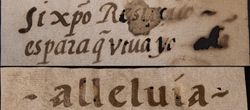 Si xp̄o Resu
es para q̄ viua yo
~ alleluia ~